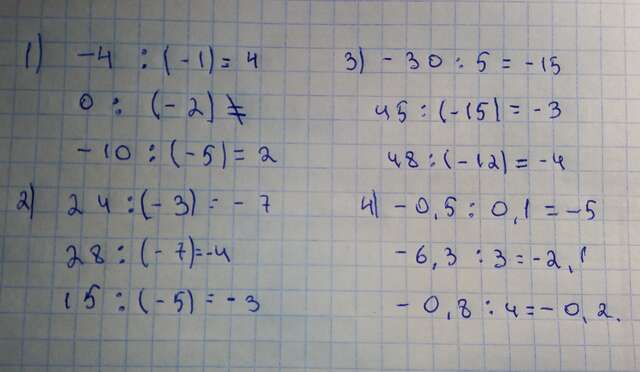 1) -4 : (-1) = 4
0 : (-2) ≠
-10 : (-5) = 2
2) 24 : (-3) = -7
28 : (-7) = -4
15 : (-5) = -3
3) -30 : 5 = -15
45 : (-15) = -3
48 : (-12) = -4
4) -0,5 : 0,1 = -5
-6,3 : 3 = -2,1
-0,8 : 4 = -0,2.